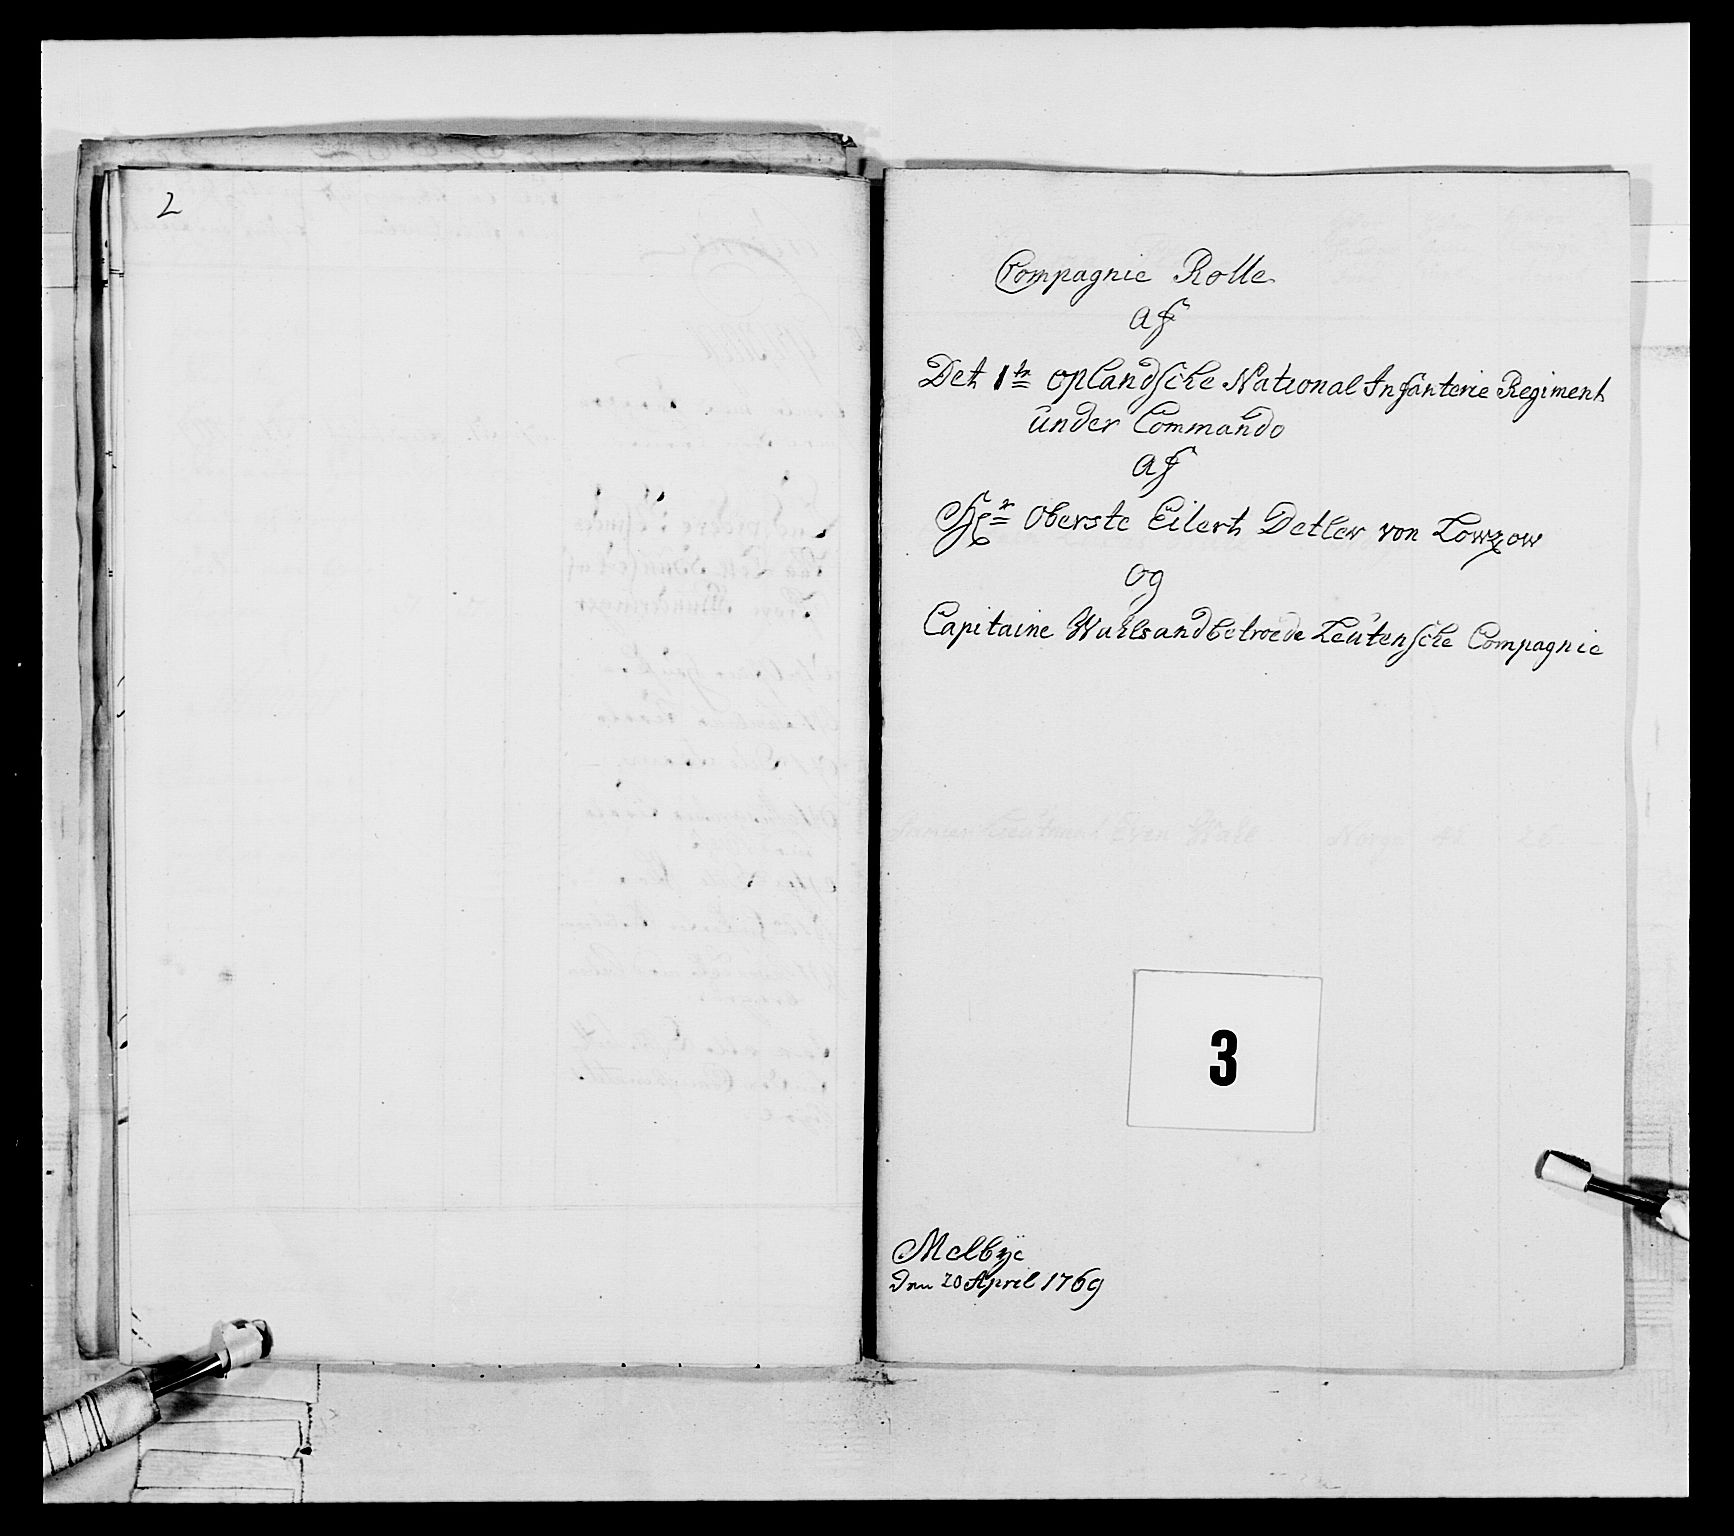 2
Compagnie Rolle
af
Det 1te oplandsche National Infanterie Regiment
under Commando
af
Hr Oberste Eilert Detlev von Lowzow
og
Capitaine Wahls andbetroede Leutensche Compagnie
3
Melbye
den 20 April 1769